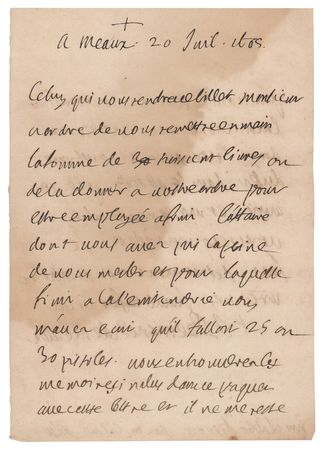 +
A Meaux. 20 Juil. 1703.
Celuy qui vous rendra ce billet monsieur
a ordre de vous remettre en main
la somme de trois cent livres ou
de la donner a vostre ordre pour
estre employée a finir l'affaire
dont vous avez pris la peine
de vous mesler et pour laquelle
finir a
m'avez écrit qu'il falloit 25 ou
30 pistoles. vous trouverez les
memoires
avec cette lettre et il ne me reste